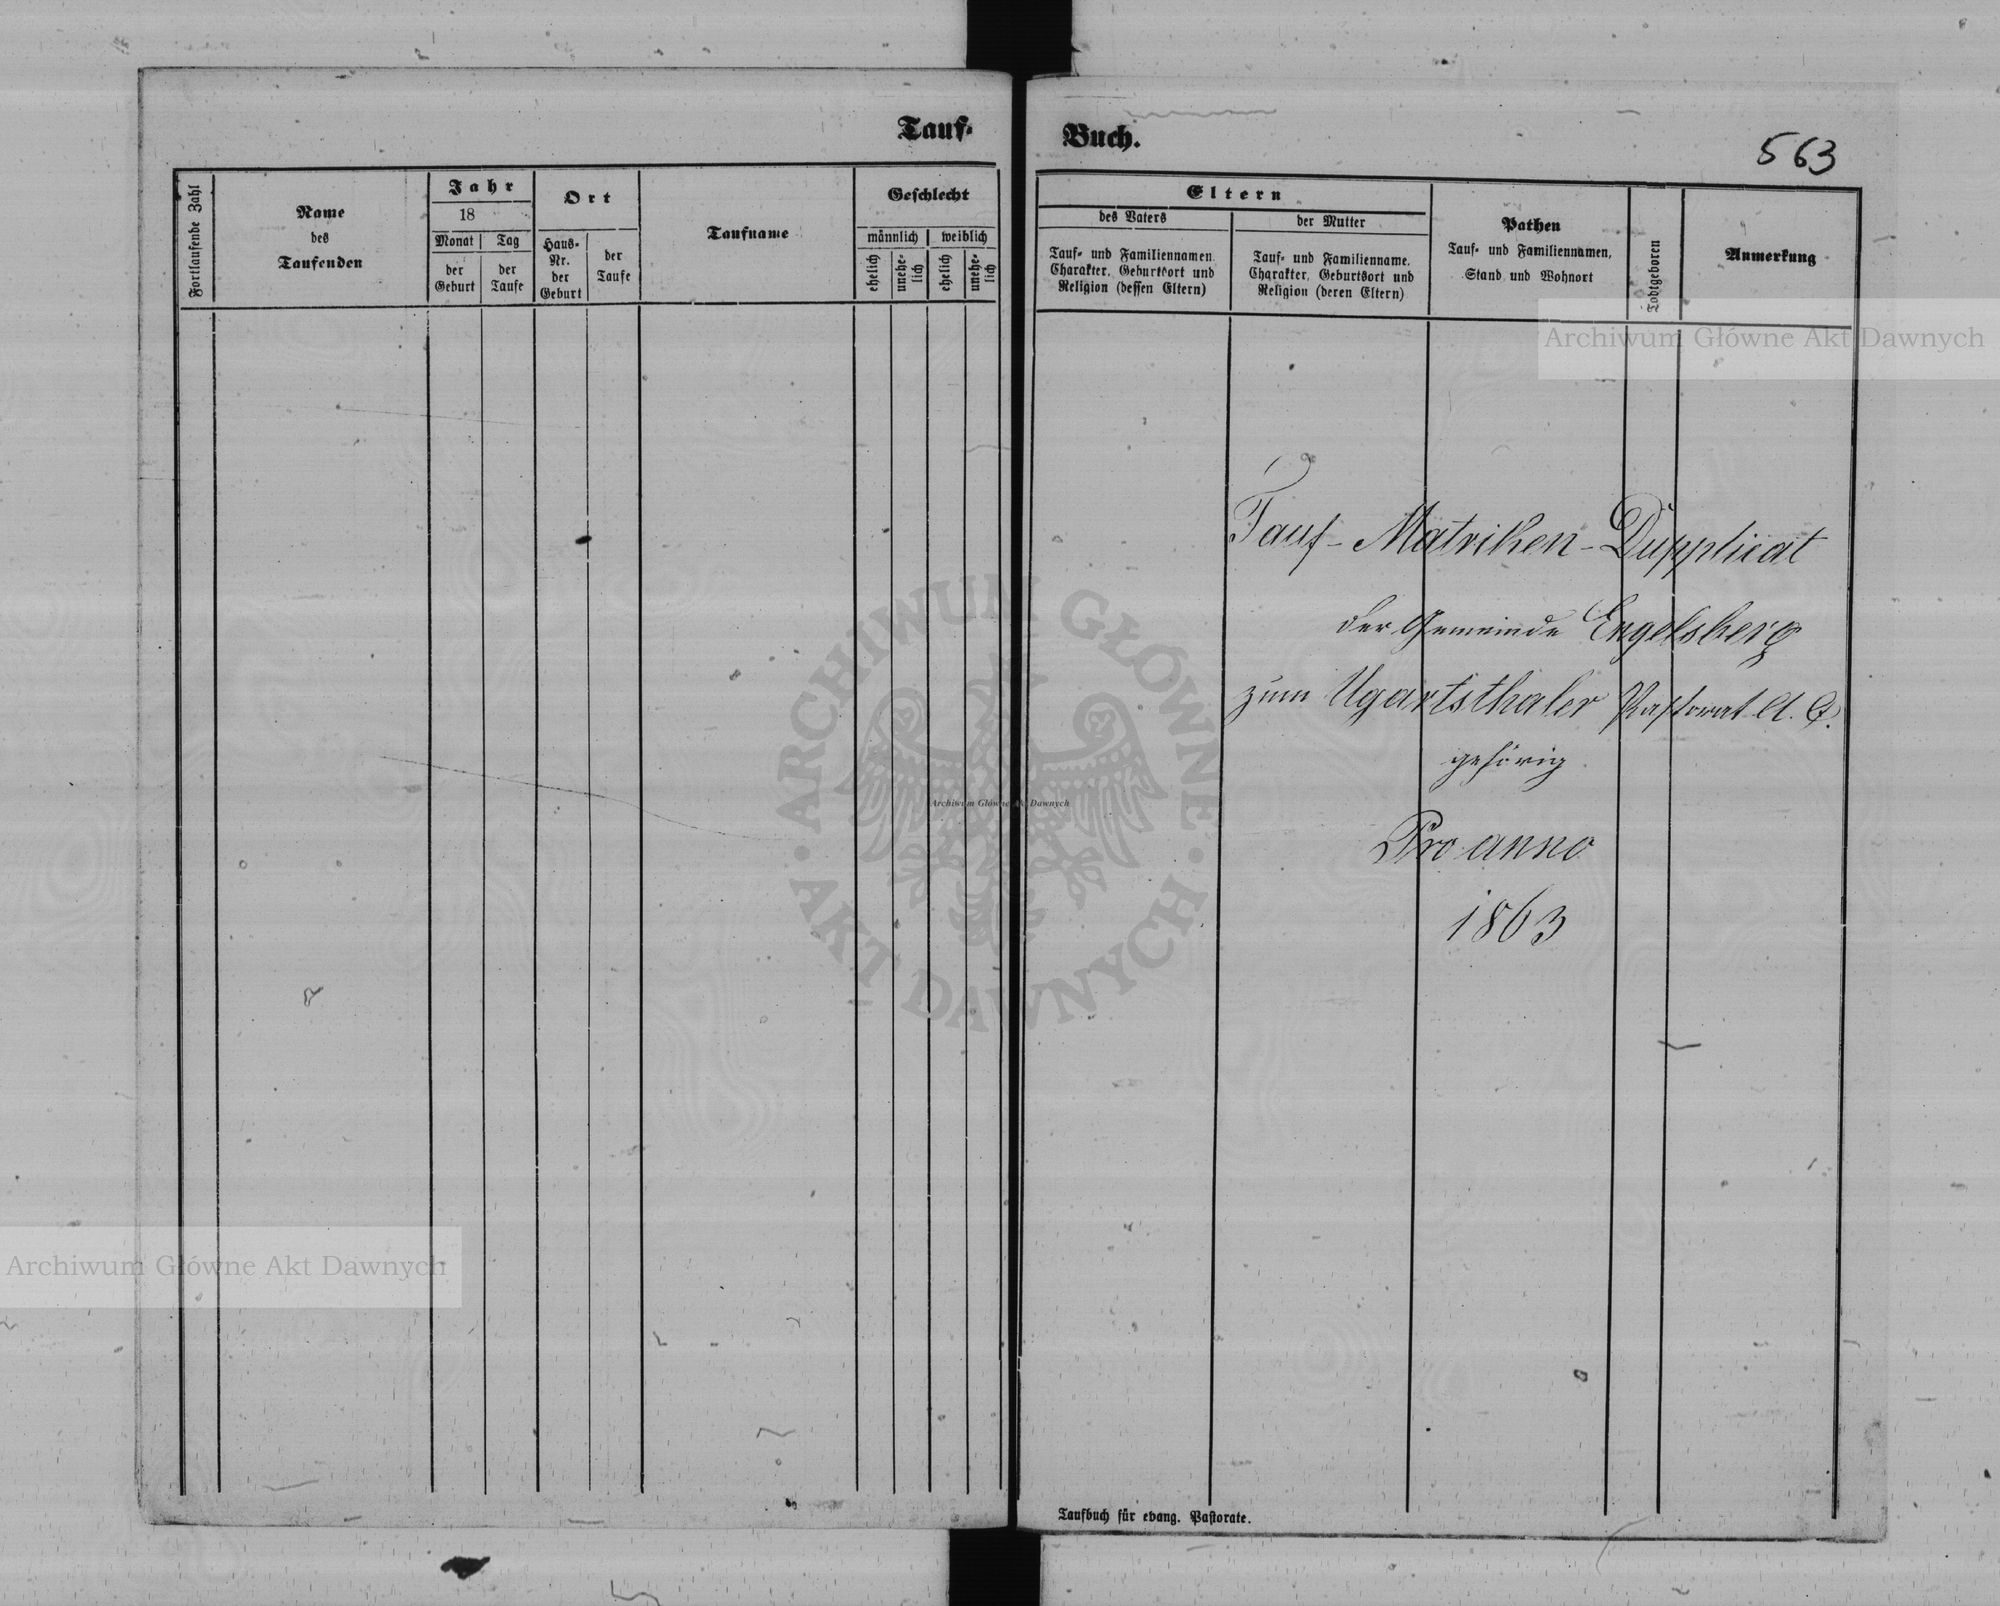 Tauf-
Fortlaufende Zahl
Name
des
Taufenden
Jahr
18
Monat
Tag
der
Geburt
der
Taufe
Ort
Haus-
Nr.
der
Geburt
der
Taufe
Taufname
Geschlecht
männlich
weiblich
ehelich
unehe-
lich
ehelich
unehe-
lich
Buch.
563
Eltern
des Vaters
Tauf- und Familiennamen
Charakter, Geburtsort und
Religion (dessen Eltern)
der Mutter
Tauf- und Familienname.
Charakter, Geburtsort und
Religion (deren Eltern)
Pathen
Tauf- und Familiennamen,
Stand und Wohnort
Todtgeboren
Anmerkung
Archiwum Główne Akt Dawnych
Tauf-Matriken-Dupplicat
der Gemeinde Engelsberg
zum Ugartsthaler Pastorat A. C.
gehörig
Pro anno
1863
ARCHIWUM GŁÓWNE
AKT DAWNYCH
Archiwum Główne Akt Dawnych
Archiwum Główne Akt Dawnych
Taufbuch für evang. Pastorate.